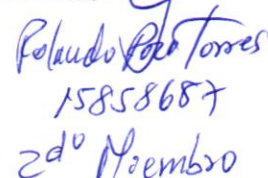 Rolando Torres
15858687
2do Miembro